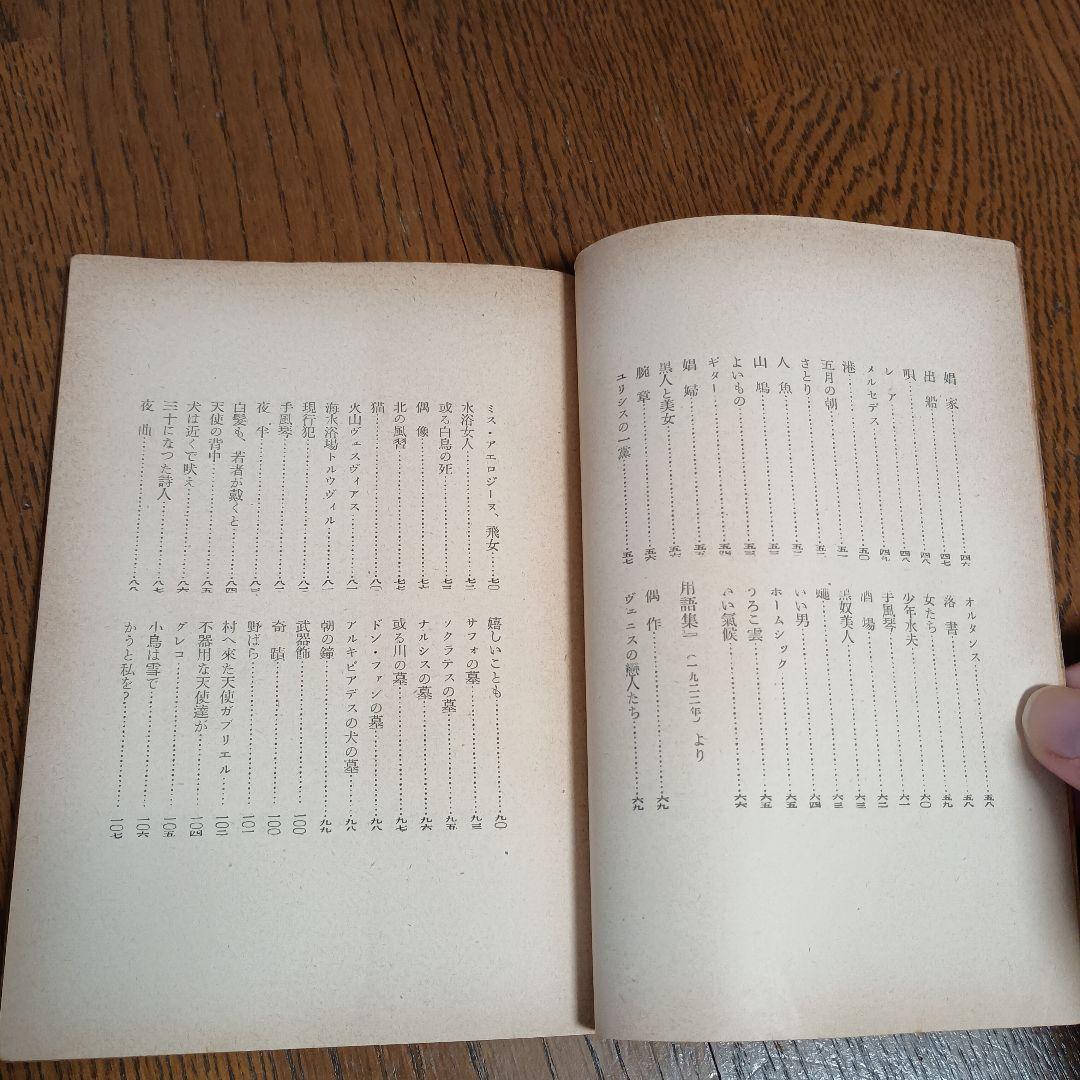 娼家……四六
出船……四七
唄……四八
レア……四九
メルセデス……五〇
港……五一
五月の朝……五二
さとり……五二
人魚……五三
山鳩……五三
よいもの……五四
ギター……五五
娼婦……五五
黒人と美女……五六
腕章……五六
ユリシスの一黨……五七
オルタンス……五八
落書……五九
女たち……六〇
少年水夫……六一
手風琴……六二
酒場……六三
黒奴美人……六三
蠅……六四
いい男……六五
ホームシック……六五
うろこ雲……六六
いい氣候……六六
用語集』(一九二二年)より
偶作……六九
ヴェニスの戀人たち……六九
ミス・アエロジーヌ、飛女……七〇
水浴女人……七二
或る白鳥の死……七三
偶像……七六
北の風習……七七
猫……八〇
火山ヴェスヴィアス……八一
海水浴場トルウヴィル……八一
現行犯……八二
手風琴……八二
夜半……八三
白髪も、若者が戴くと……八四
天使の背中……八五
犬は近くで吠え……八六
三十になつた詩人……八七
夜曲……八八
嬉しいことも……九〇
サフォの墓……九三
ソクラテスの墓……九五
ナルシスの墓……九六
或る川の墓……九七
ドン・ファンの墓……九八
アルキビアデスの犬の墓……九八
朝の鐘……九九
武器飾……一〇〇
奇蹟……一〇〇
野ばら……一〇一
村へ來た天使ガブリエル……一〇二
不器用な天使達が……一〇四
グレコ……一〇五
小鳥は雪で……一〇六
かうと私を?……一〇七